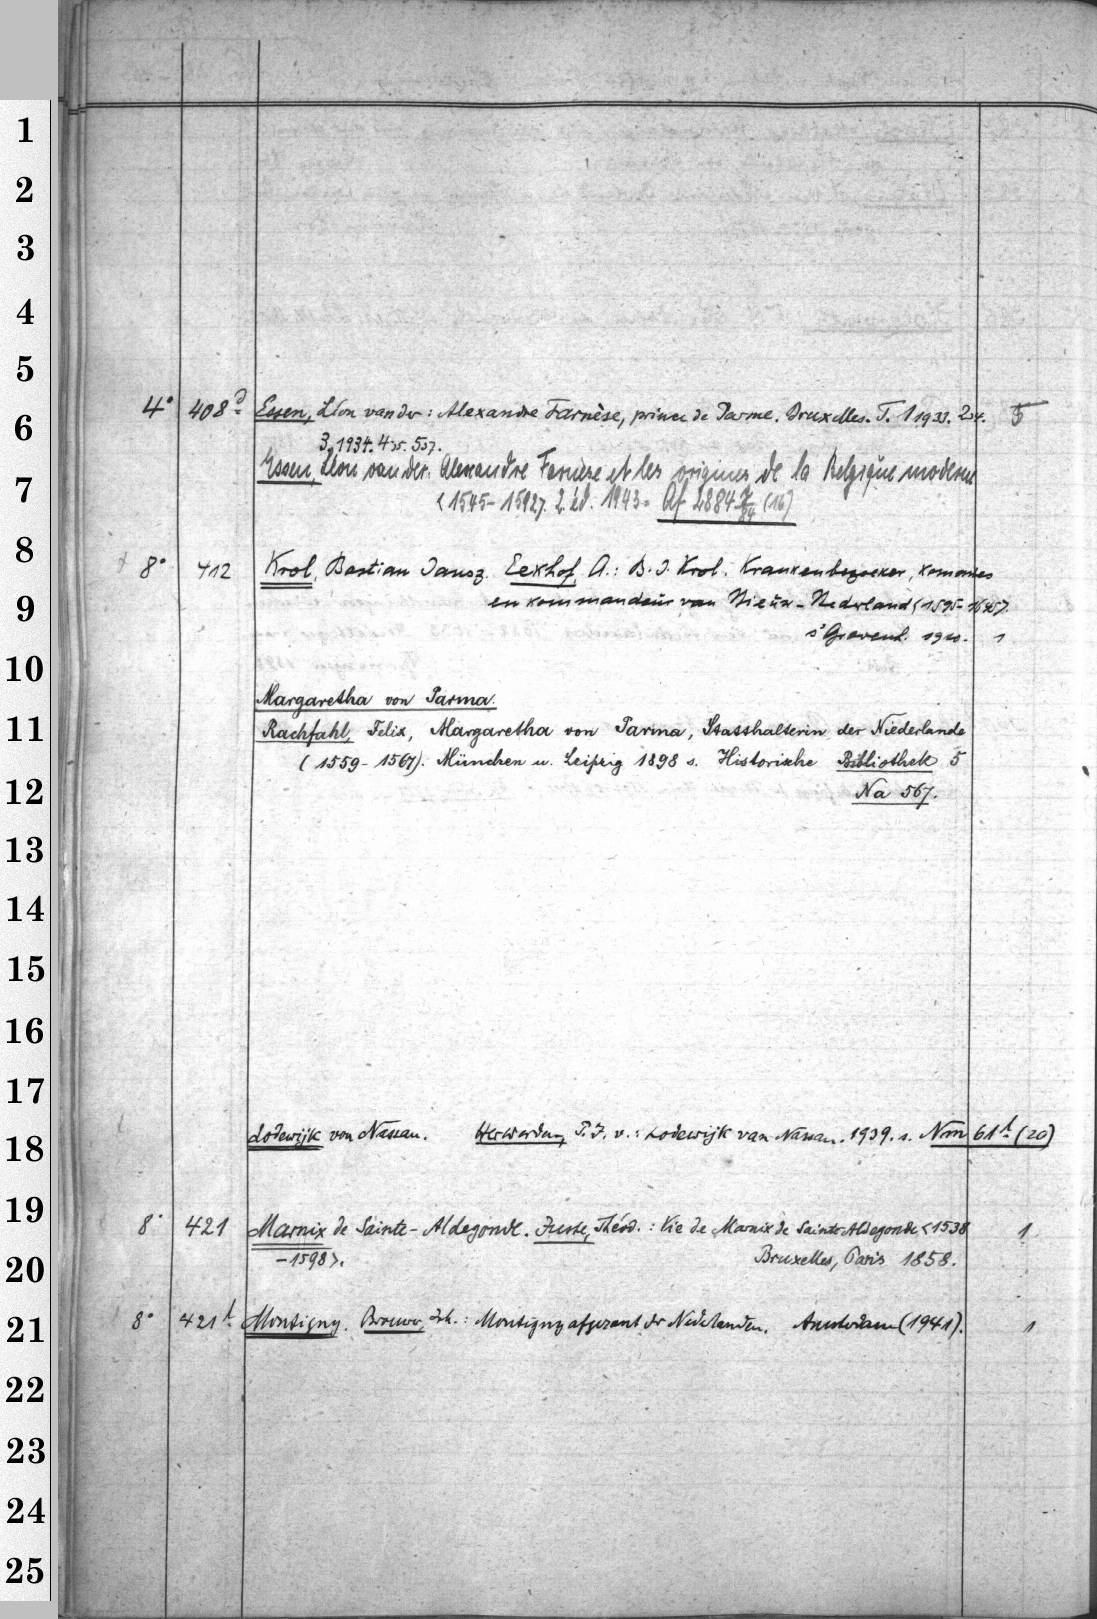 1
2
3
4
5
6
7
8
9
10
11
12
13
14
15
16
17
18
19
20
21
22
23
24
25
4° 408d Essen, Léon van der: Alexandre Farnèse, prince de Parme. Bruxelles. T. 1 1933. 2 34. 5
3, 1934. 4 35. 5 37.
Essen, Léon van der: Alexandre Farnèse et les origines de la Belgique moderne
<1545-1592>. 2. éd. 1943. Af 2884 (16)
8° 412 Krol, Bastian Jansz. Eekhof, A.: B. J. Krol. Krankenbezoeker, komomes
en kommandeur van Nieuw-Nederland <1595-1645>.
s'Gravenh. 1910. 1
Margaretha von Parma.
Rachfahl, Felix, Margaretha von Parma, Statthalterin der Niederlande
(1559-1567). München u. Leipzig 1898 s. Historische Bibliothek 5
Na 567.
Lodewijk von Nassau. Herwerden, P. J. v.: Lodewijk van Nassau. 1939. s. Nm 61h (20)
8° 421 Marnix de Sainte-Aldegonde. Juste, Théod.: Vie de Marnix de Sainte-Aldegonde <1538 1
-1598>. Bruxelles, Paris 1858.
8° 421h Montigny. Brouwer, Joh.: Montigny afgezant der Nederlanden. Amsterdam (1941). 1